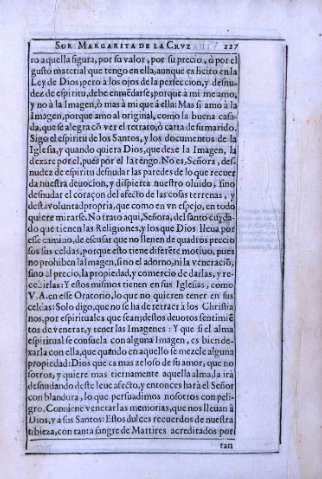 SOR MARGARITA DE LA CRVZ 227
ro aquella figura, por su valor, por su precio, ò por el
gusto material que tengo en ella, aunque es licito en la
Ley de Dios; pero à los ojos de la perfeccion, y desnu-
dez de espiritu, debe enmēdarse; porque à mi me amo,
y no à la Imagen, ò mas à mi que à ella: Mas si amo à la
Imagen, porque amo al original, como la buena casa-
da, que se alegra cō ver el retrato, ò carta de su marido.
Sigo el espiritu de los Santos, y los documentos de la
Iglesia, y quando quiera Dios, que dexe la Imagen, la
dexarè por el, pues por el la tengo. No es, Señora, des-
nudez de espiritu desnudar las paredes de lo que recuer
da nuestra deuocion, y dispierta nuestro oluido; sino
desnudar el coraçon del afecto de las cosas terrenas, y
desta volūtad propria, que como en vn espejo, en todo
quiere mirarse. No trato aqui, Señora, del santo cuyda-
do que tienen las Religiones, y los que Dios lleua por
ese camino, de escusar que no llenen de quadros precio
sos sus celdas, porque esto tiene diferēte motiuo, pues
no prohiben la Imagen, sino el adorno, ni la veneraciō,
sino al precio, la propiedad, y comercio de darlas, y re-
cebirlas: Y estos mismos tienen en sus Iglesias, como
V.A. en ese Oratorio, lo que no quieren tener en sus
celdas: Solo digo, que no se ha de retraer à los Christia
nos, por espirituales que sean, destos deuotos sentimiē
tos de venerar, y tener las Imagenes: Y que si el alma
espiritual se consuela con alguna Imagen, es bien de-
xarla con ella, que quando en aquello se mezcle alguna
propiedad: Dios que ca mas zeloso de su amor, que no
sotros, y quiere mas tiernamente aquella alma, la irà
desnudando deste leue afecto, y entonces harà el Señor
con blandura, lo que persuadimos nosotros con peli-
gro. Conuiene venerar las memorias, que nos lleuan à
Dios, y à sus Santos: Estos dulces recuerdos de nuestra
tibieza, con tanta sangre de Martires acreditados por
tan